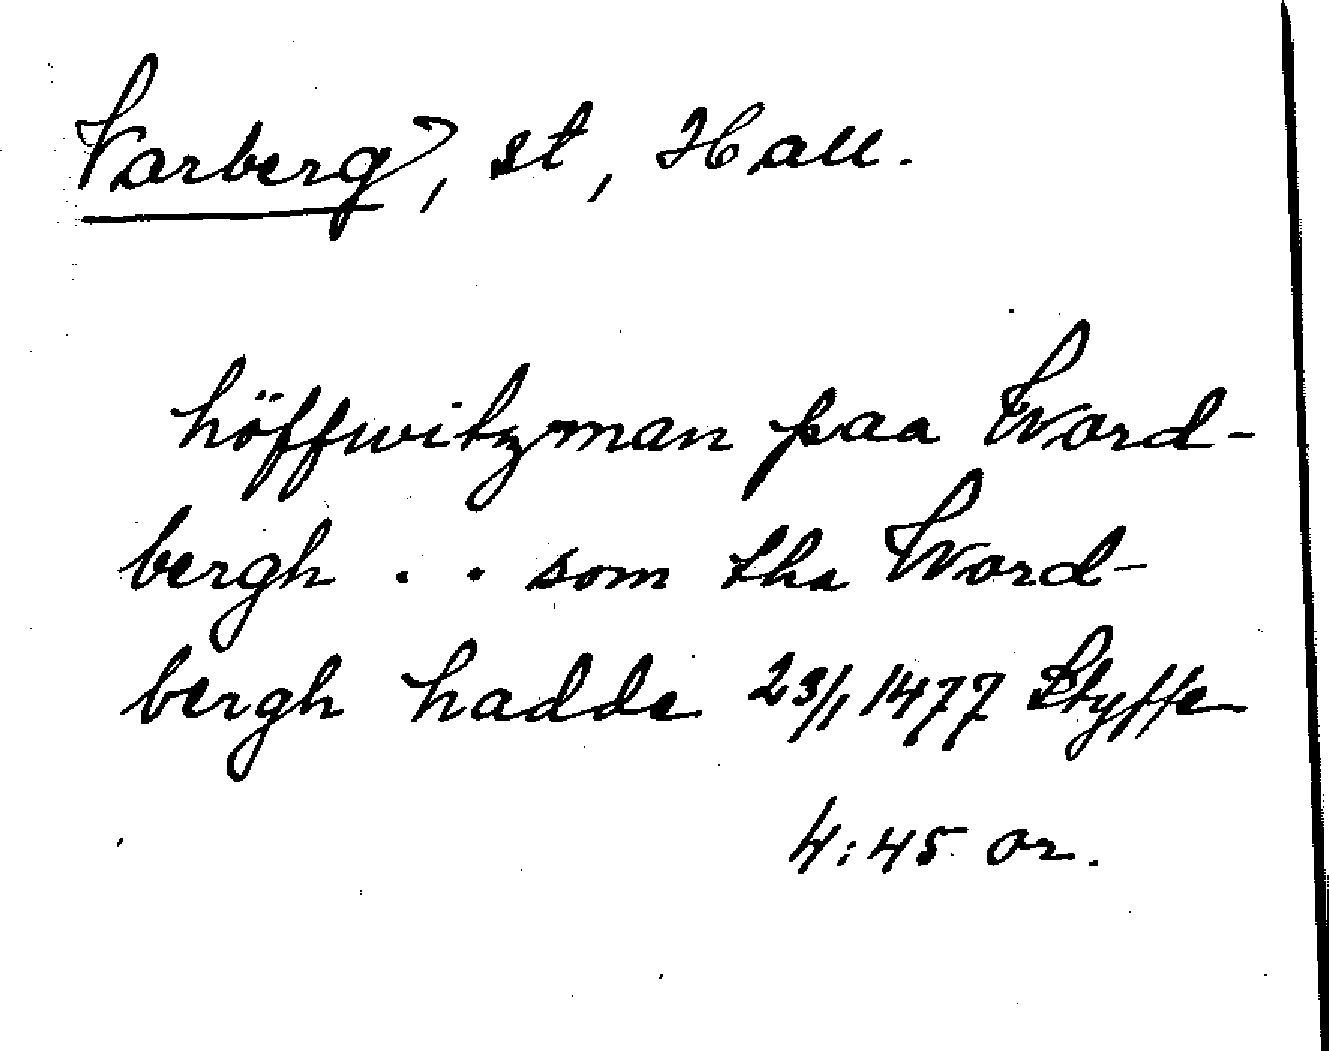 Varberg, st, Hall.
höffwitzman paa Word-
bergh . . som tha Word-
bergh hadde 23/1 1477 Styffe
4:45 or.